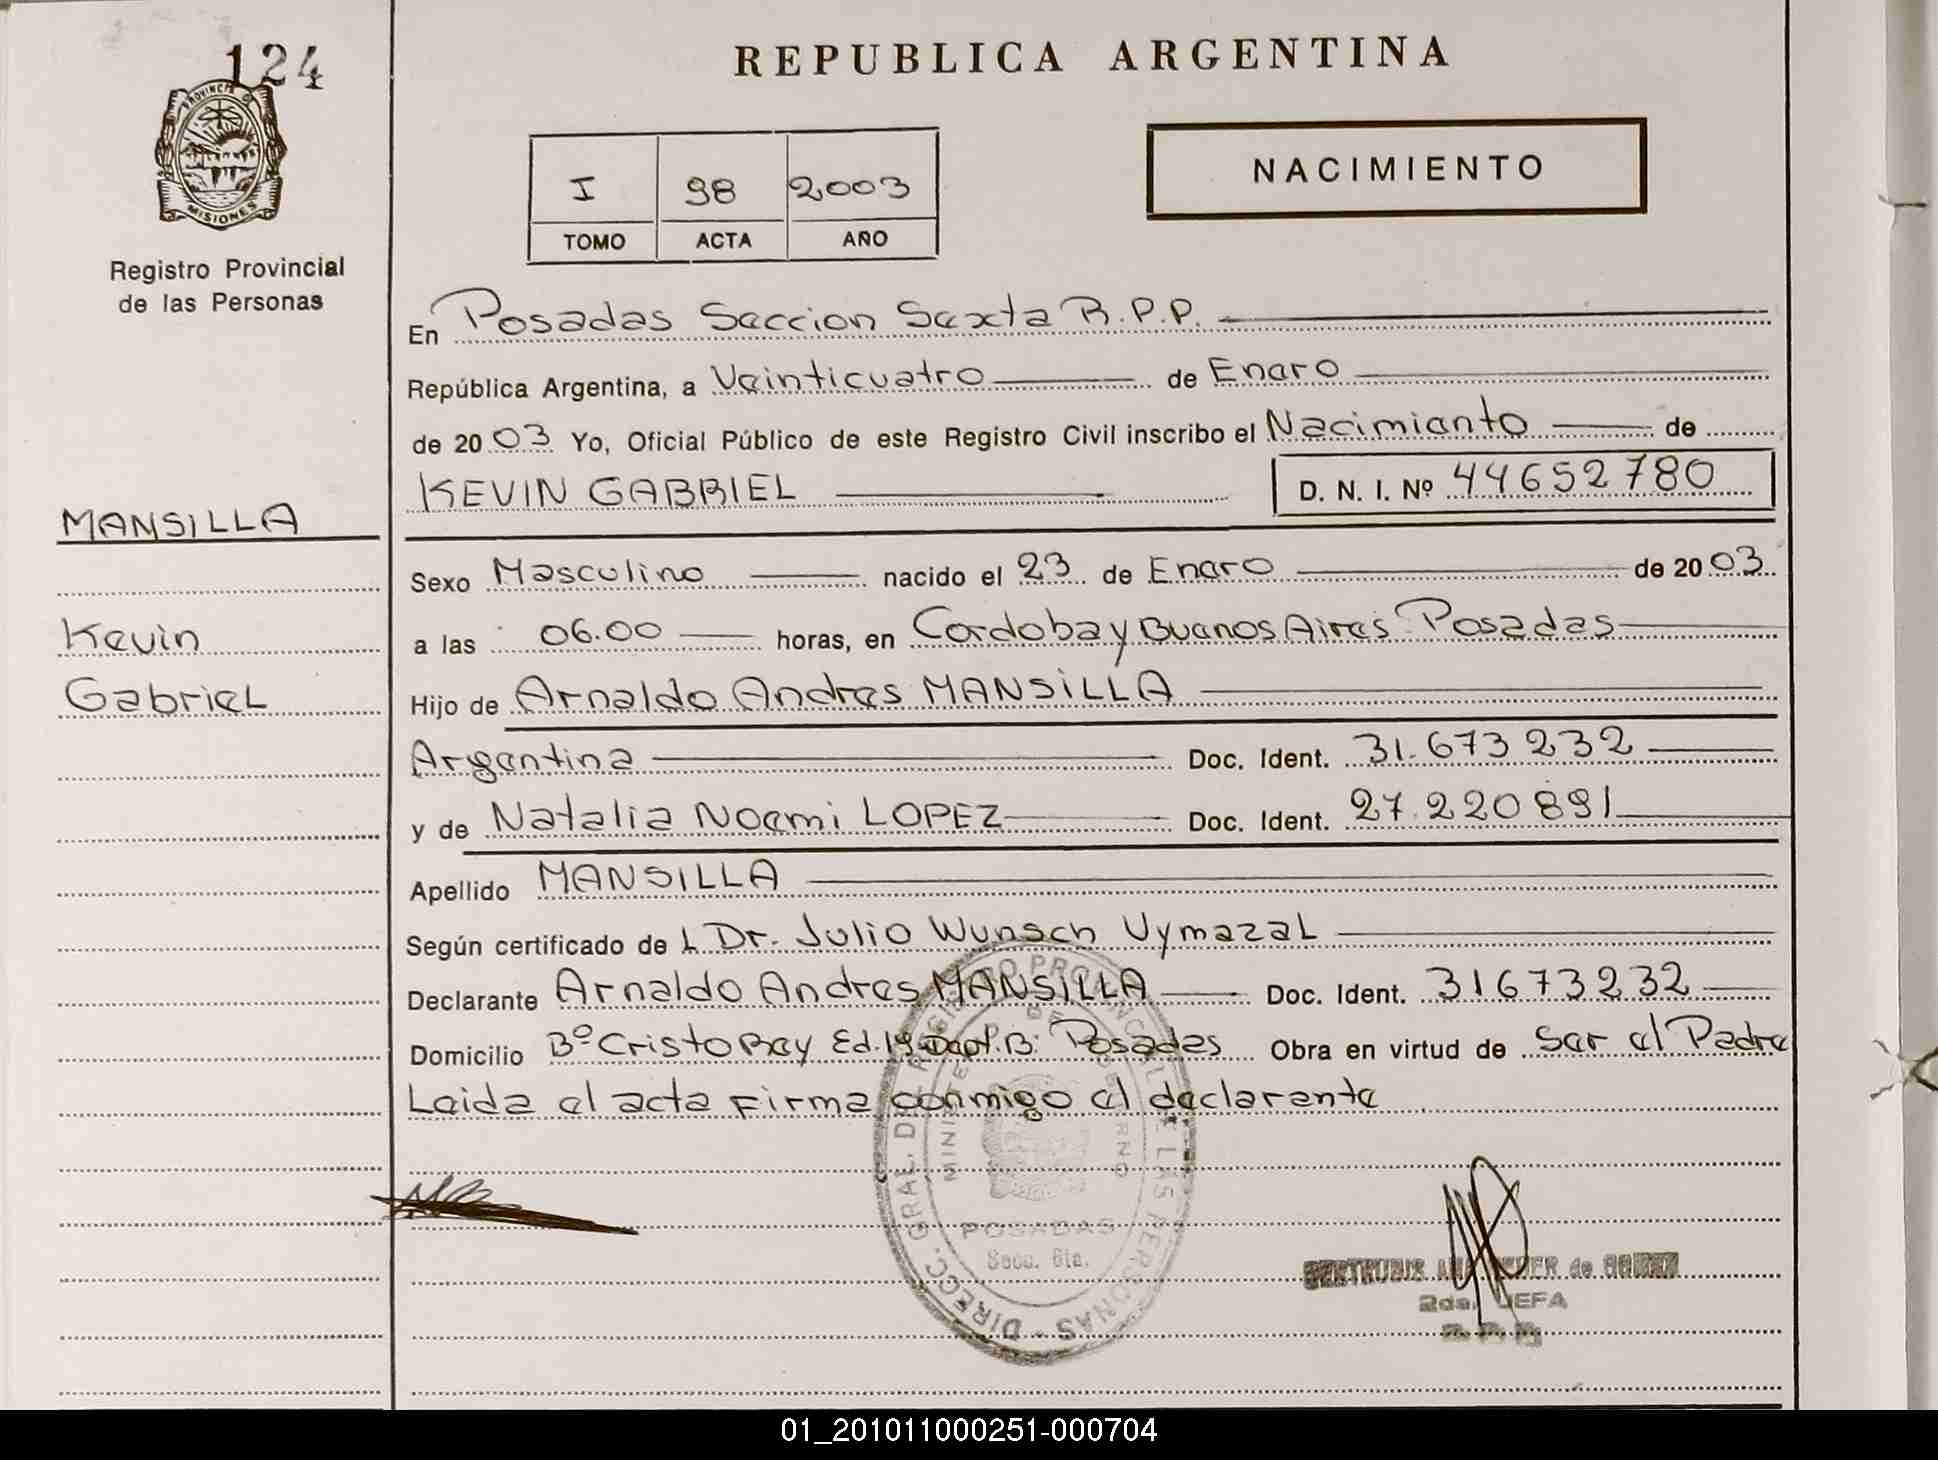 124
PROVINCIA DE
MISIONES
Registro Provincial
de las Personas
MANSILLA
Kevin
Gabriel
REPUBLICA ARGENTINA
I 98 2003
TOMO ACTA AÑO
NACIMIENTO
En Posadas Seccion Sexta R.P.P.
República Argentina, a Veinticuatro de Enero
de 2003 Yo, Oficial Público de este Registro Civil inscribo el Nacimiento de
KEVIN GABRIEL D. N. I. Nº 44652780
Sexo Masculino nacido el 23 de Enero de 2003
a las 06.00 horas, en Cordoba y Buenos Aires Posadas
Hijo de Arnaldo Andres MANSILLA
Argentina Doc. Ident. 31.673232
y de Natalia Noemi LOPEZ Doc. Ident. 27.220891
Apellido MANSILLA
Según certificado de L Dr. Julio Wunsch Vymazal
Declarante Arnaldo Andres MANSILLA Doc. Ident. 31673232
Domicilio Bº Cristo Rey Ed. 19 Dept. B. Posadas Obra en virtud de Ser el Padre
Leida el acta Firma conmigo el declarante
DIRECC. GRAL. DEL REGISTRO PROVINCIAL DE LAS PERSONAS
MINISTERIO DE GOBIERNO
POSADAS
Secc. 6ta.
de
2da. JEFA
01_201011000251-000704